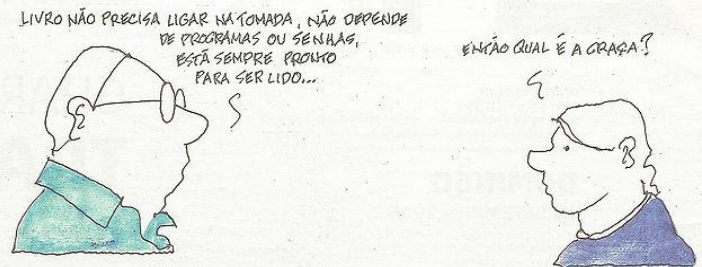 LIVRO NÃO PRECISA LIGAR NA TOMADA, NÃO DEPENDE
DE PROGRAMAS OU SENHAS,
ESTÁ SEMPRE PRONTO
PARA SER LIDO...
ENTÃO QUAL É A GRAÇA?